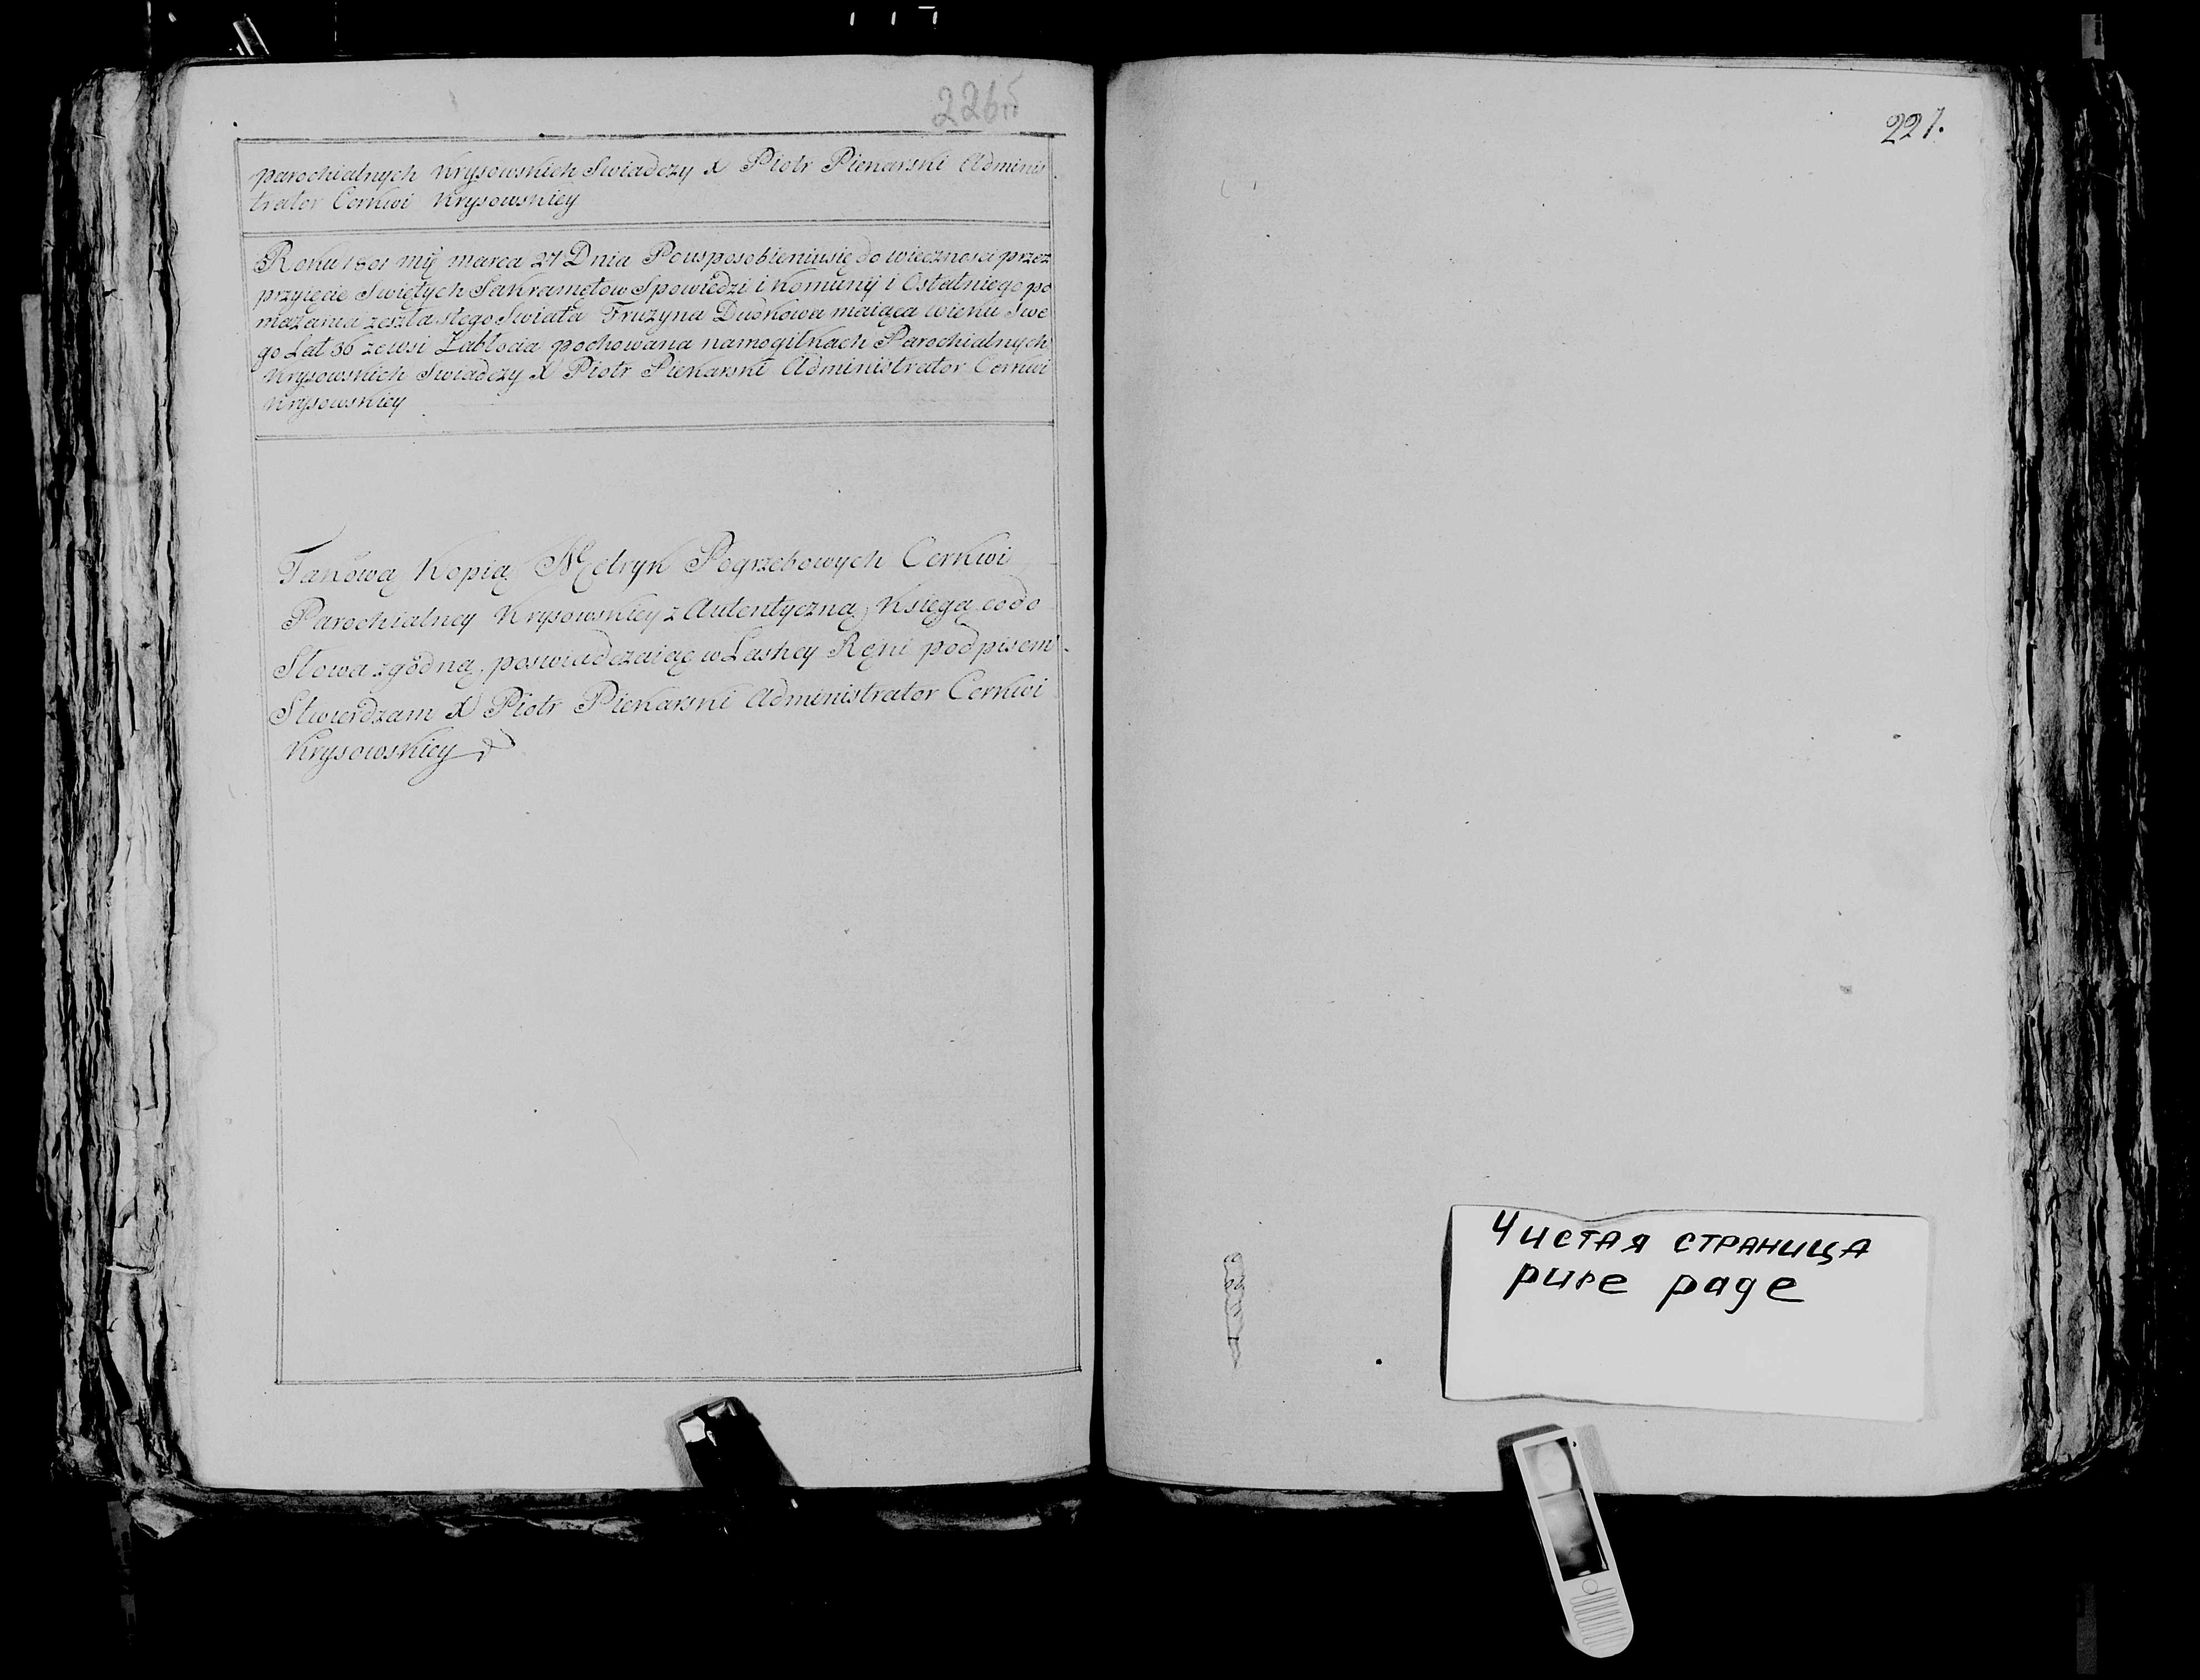 226об
parochialnych Krysowskich Swiadczy X Piotr Piekarski Adminis
trator Cerkwi Krysowskiey
Roku 1801 mij marca 27 Dnia Pousposobieniusię do wiecznosci przez
przyięcie Swiętych Sakrametow Spowiedzi i Komunij i Ostatniego po
mazania zeszła stego Swiata Fruzyna Dudkowa maiąca wieku Swe
go Lat 36 zewsi Zabłocia pochowana namogiłkach Parochialnych
Krysowskich Swiadczy X Piotr Piekarski Administrator Cerkwi
Krysowskiey
Takową Kopią Metryk Pogrzebowych Cerkwi
Parochialney Krysowskiey z Autentyczną Księgą codo
Słowa zgodną, poswiadczaiąc w Łasney Ręki podpisem
Stwierdzam X Piotr Piekarski Administrator Cerkwi
Krysowskiey
227.
Чистая страница
pure page